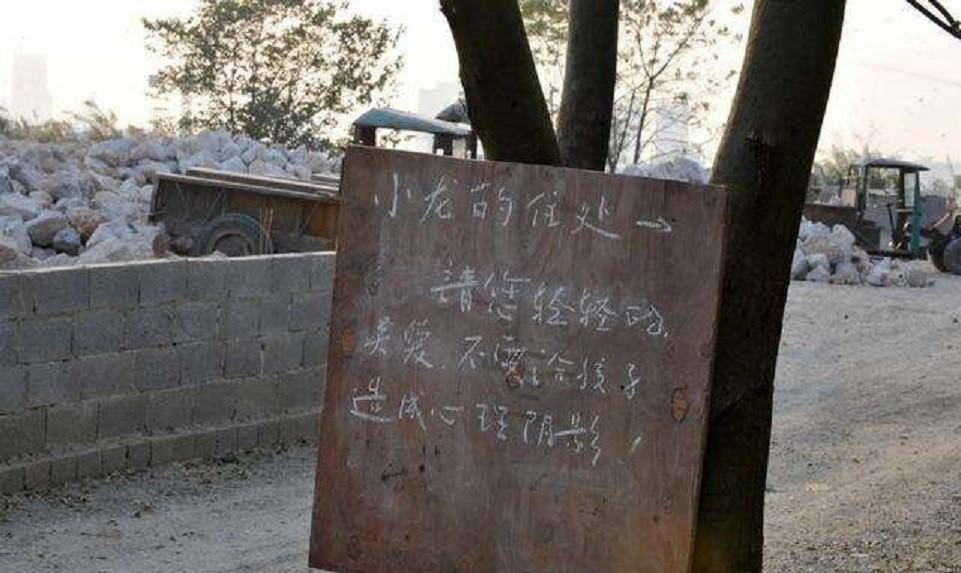 小龙的住处→
請您轻轻的,
关爱,不要给孩子
造成心理阴影,